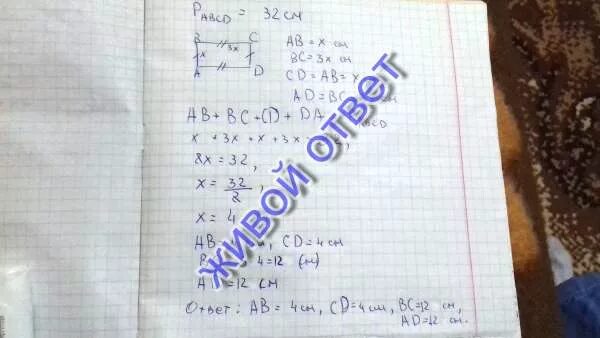 P ABCD = 32 см
B C
x 3x
A D
AB = x см
BC = 3x см
CD = AB = x
AD = BC см
AB + BC + CD + DA ABCD
x + 3x + x + 3x
8x = 32,
x = 32/8,
x = 4
AB = , CD = 4 см
4 = 12 (см)
12 см
Ответ: AB = 4 см, CD = 4 см, BC = 12 см,
AD = 12 см.
ЖИВОЙ ОТВЕТ